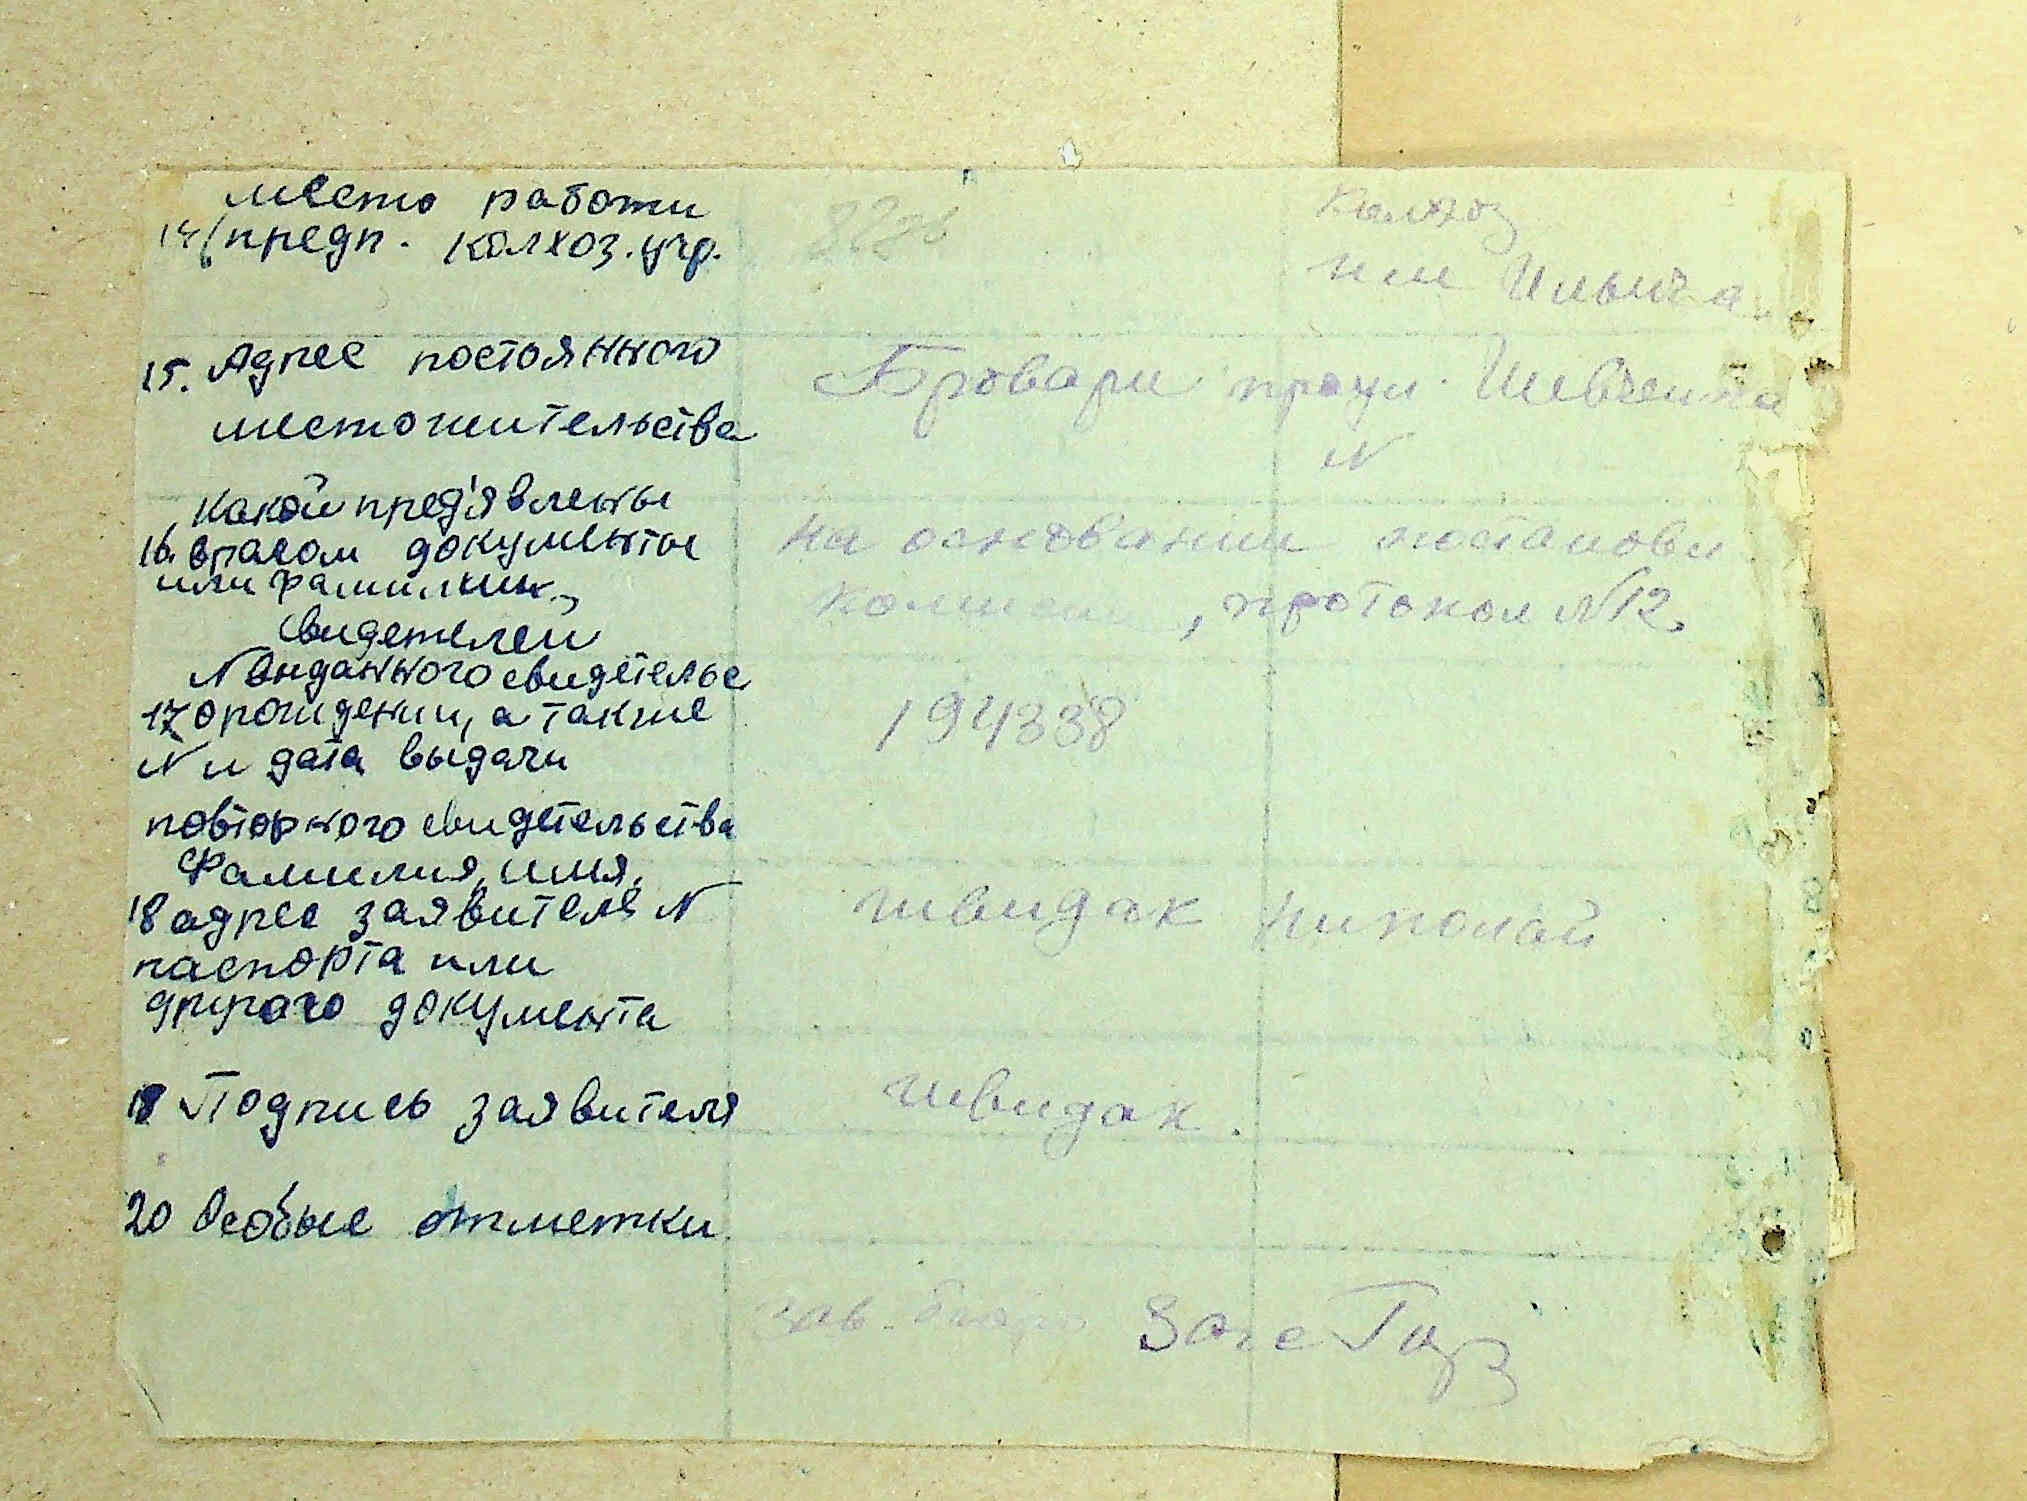 место работи
14/ предп. колхоз. учр.
колхоз
им Ильича
15. Адрес постоянного
местожительства
Бровари пр-ул. Шевченка
N
какой пред'явлены
16. врагом документы
или фамилии
свидетелей
на основании постанови
комисии, протокол N12.
N виданного свидетельс
17 о рождении, а также
N и дата выдачи
повторного свидетельства
194338
Фамилия, имя,
18 адрес заявителя N
паспорта или
другого документа
швидак Николай
Подпись заявителя
швидак.
20 Особые отметки
зав. бюро